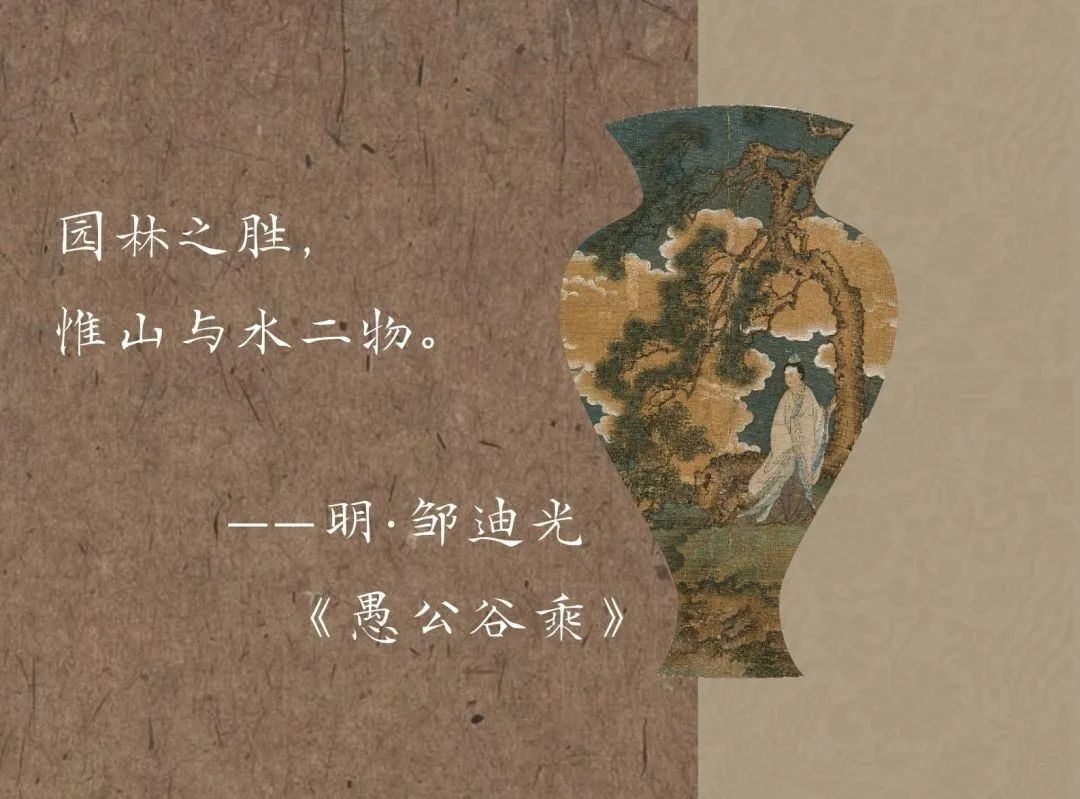 园林之胜，
惟山与水二物。
——明·邹迪光
《愚公谷乘》